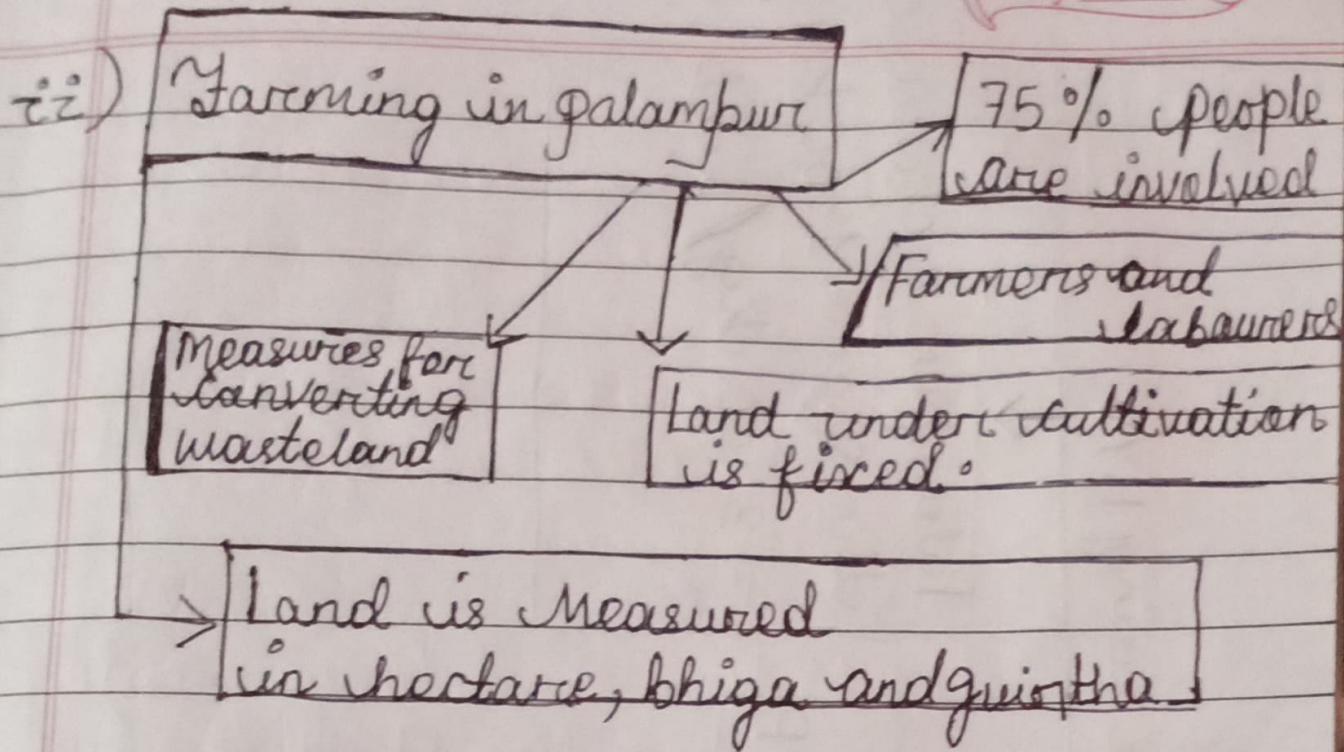 ii) Farming in palampur
75% people
are involved
Farmers and
labaurers
Measures for
canverting
wasteland
Land under cultivation
is fixed.
Land is Measured
in hectare, bhiga and guintha